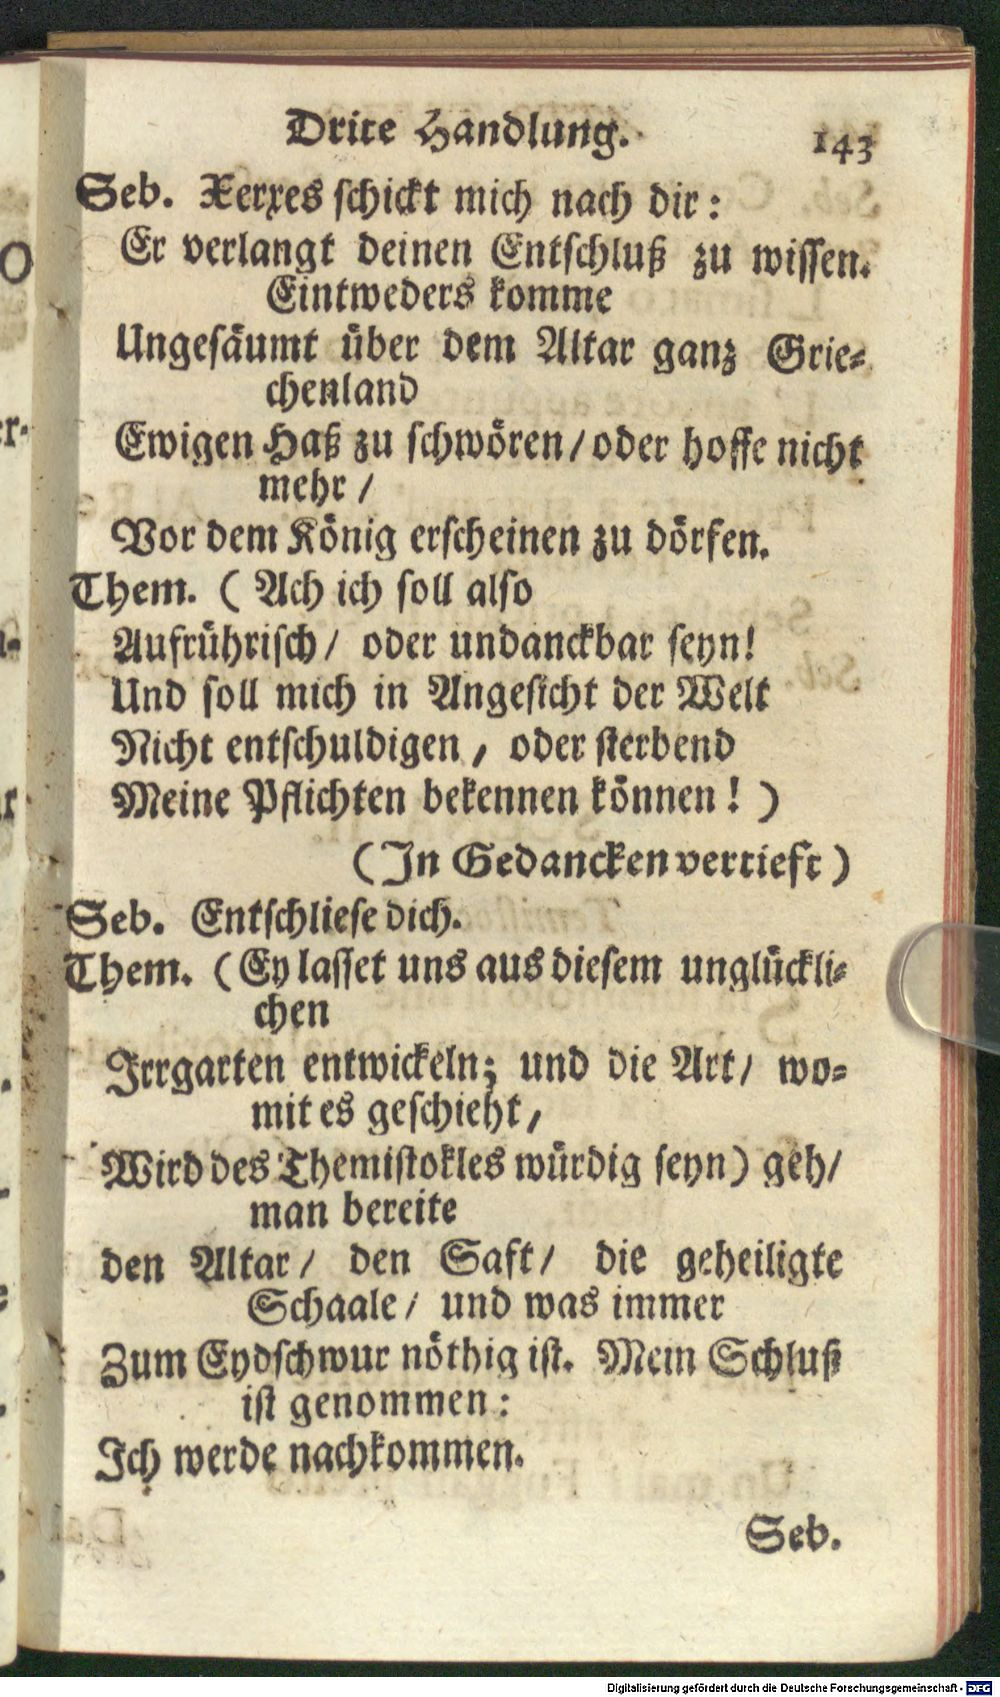 Drite Handlung. 143
Seb. Xerxes schickt mich nach dir:
Er verlangt deinen Entschluß zu wissen.
Eintweders komme
Ungesäumt über dem Altar ganz Grie-
chenland
Ewigen Haß zu schwören/ oder hoffe nicht
mehr /
Vor dem König erscheinen zu dörfen.
Them. ( Ach ich soll also
Aufrührisch/ oder undanckbar seyn!
Und soll mich in Angesicht der Welt
Nicht entschuldigen, oder sterbend
Meine Pflichten bekennen können! )
(In Gedancken vertieft)
Seb. Entschliese dich.
Them. (Ey lasset uns aus diesem unglückli-
chen
Irrgarten entwickeln; und die Art/ wo-
mit es geschieht,
Wird des Themistokles würdig seyn) geh/
man bereite
den Altar/ den Saft/ die geheiligte
Schaale/ und was immer
Zum Eydschwur nöthig ist. Mein Schluß
ist genommen:
Ich werde nachkommen.
Seb.
Digitalisierung gefördert durch die Deutsche Forschungsgemeinschaft - DFG